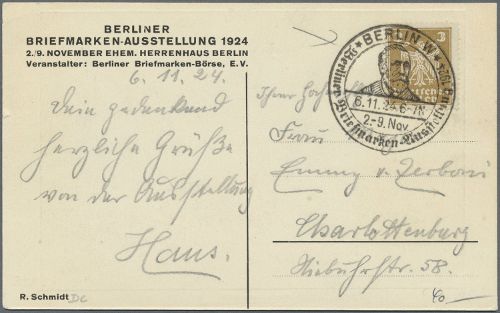 BERLINER
BRIEFMARKEN-AUSSTELLUNG 1924
2./9. NOVEMBER EHEM. HERRENHAUS BERLIN
Veranstalter: Berliner Briefmarken-Börse, E.V.
6.11.24.
Dein gedenkend
herzliche Grüße
von der Ausstellung
Hans.
R. Schmidt
BERLIN W
6.11.24 6-7N
2-9. Nov.
Berliner Briefmarken-Ausstellung 1924
3
Ihrer
Frau
Emmy von Zerboni
Charlottenburg
Niebuhrstr. 58.
40.—